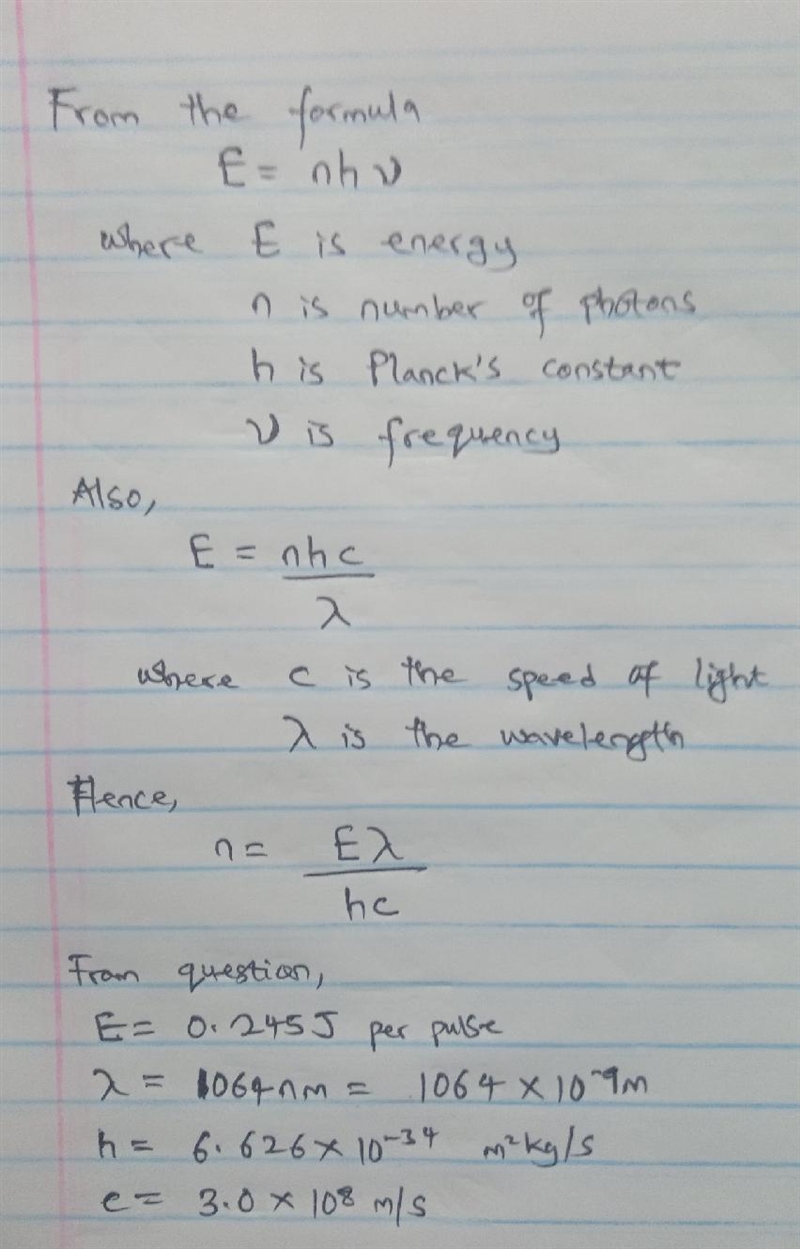 From the formula
E = nhν
where E is energy
n is number of photons
h is Planck's constant
ν is frequency
Also,
E = nhc
λ
where c is the speed of light
λ is the wavelength
Hence,
n = Eλ
hc
From question,
E = 0.245J per pulse
λ = 1064nm = 1064 × 10⁻⁹m
h = 6.626 × 10⁻³⁴ m²kg/s
c = 3.0 × 10⁸ m/s